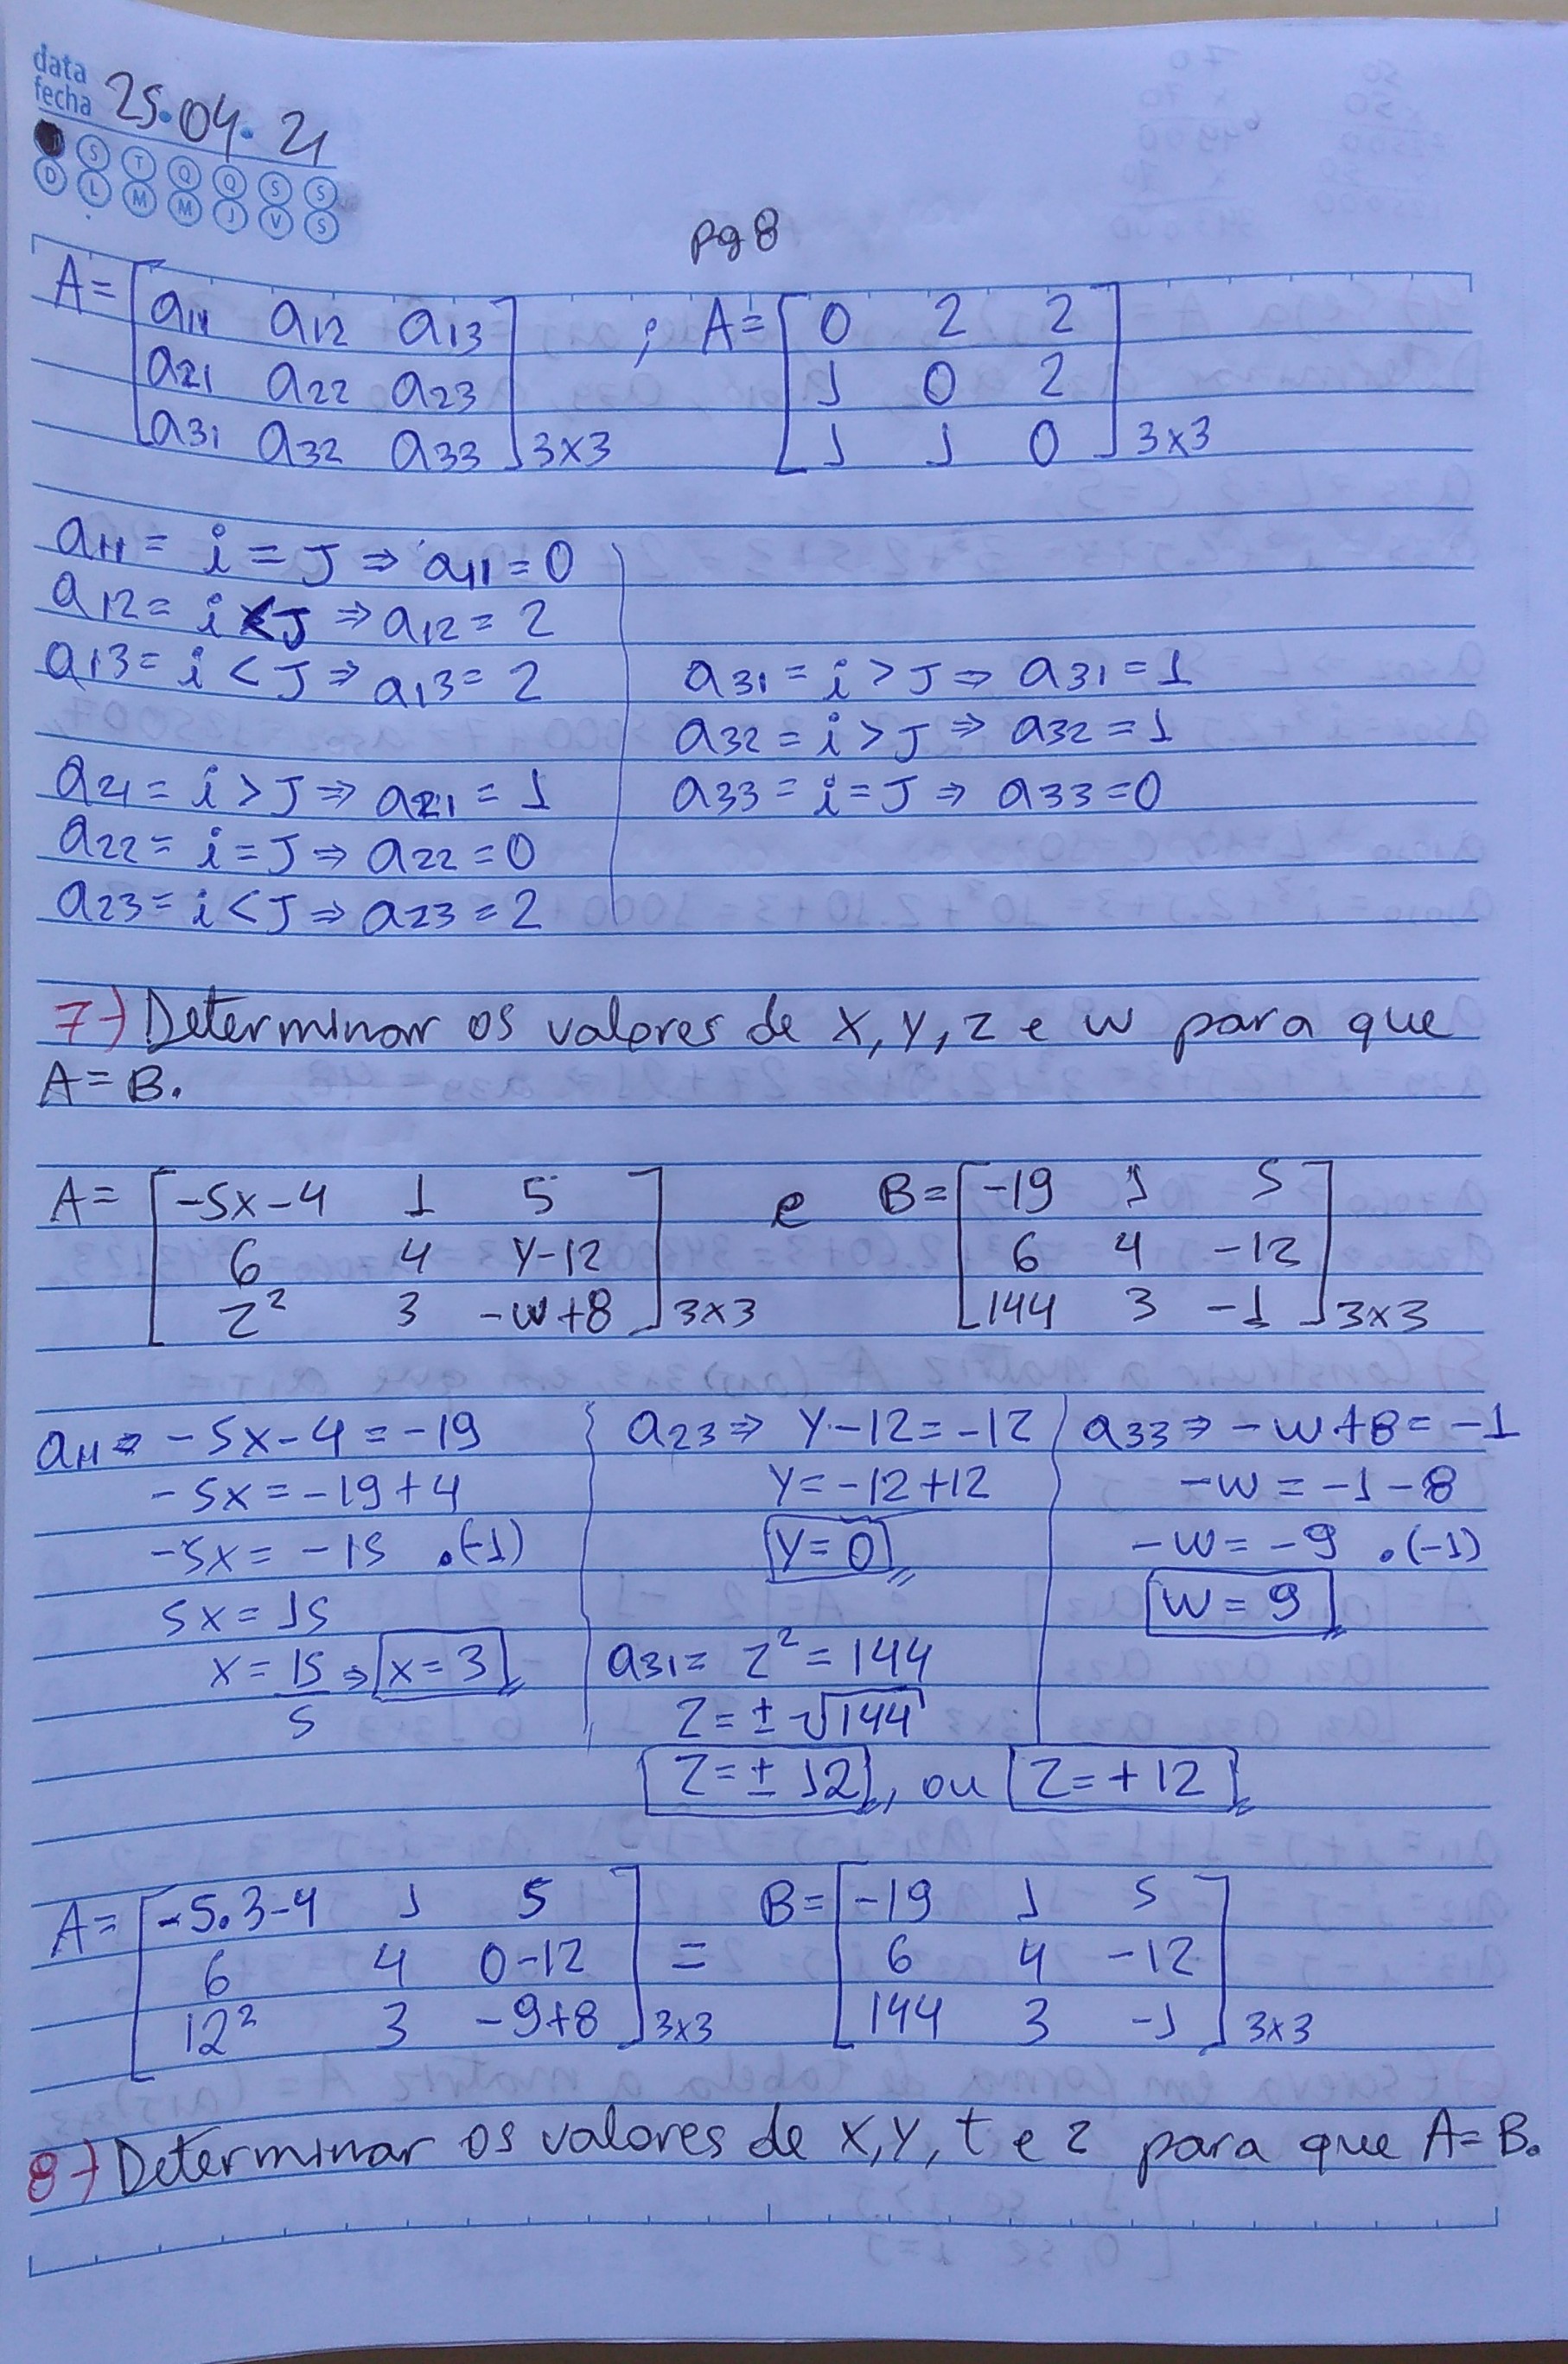 data
fecha 25.04.21
D S T Q Q S S
D L M M J V S
pg 8
A = [a11 a12 a13 ; A = [0 2 2
a21 a22 a23 1 0 2
a31 a32 a33] 3x3 1 1 0] 3x3
a11 = i = J ⇒ a11 = 0
a12 = i < J ⇒ a12 = 2
a13 = i < J ⇒ a13 = 2
a21 = i > J ⇒ a21 = 1
a22 = i = J ⇒ a22 = 0
a23 = i < J ⇒ a23 = 2
a31 = i > J ⇒ a31 = 1
a32 = i > J ⇒ a32 = 1
a33 = i = J ⇒ a33 = 0
7-) Determinar os valores de x, y, z e w para que
A = B.
A = [-5x-4 1 5 e B = [-19 1 5
6 4 y-12 6 4 -12
z² 3 -w+8] 3x3 144 3 -1] 3x3
a11 ⇒ -5x-4 = -19
-5x = -19+4
-5x = -15 .(-1)
5x = 15
x = 15/5 ⇒ x = 3
a23 ⇒ y-12 = -12
y = -12+12
y = 0
a31 = z² = 144
z = ± √144
z = ± 12, ou z = +12
a33 ⇒ -w+8 = -1
-w = -1-8
-w = -9 .(-1)
w = 9
A = [-5.3-4 1 5 = B = [-19 1 5
6 4 0-12 6 4 -12
12² 3 -9+8] 3x3 144 3 -1] 3x3
8-) Determinar os valores de x, y, t e z para que A = B.